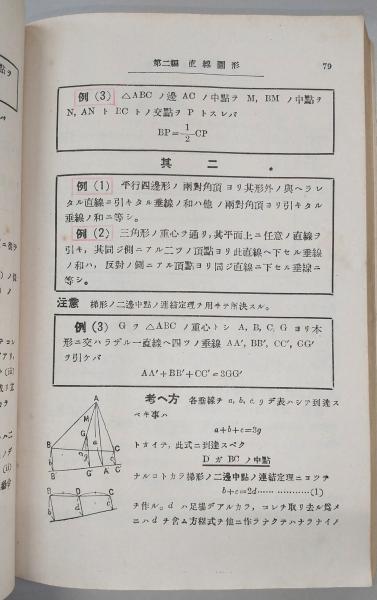 第二編 直線圖形 79
例(3) △ABC ノ邊 AC ノ中點ヲ M, BM ノ中點ヲ
N, AN ト BC トノ交點ヲ P トスレバ
BP=1/2CP
其二
例(1) 平行四邊形ノ兩對角頂ヨリ其形外ノ與ヘラレ
タル直線ニ引キタル垂線ノ和ハ他ノ兩對角頂ヨリ引キタル
垂線ノ和ニ等シ。
例(2) 三角形ノ重心ヲ通リ,其平面上ニ任意ノ直線ヲ
引キ,其同ジ側ニアル二ツノ頂點ヨリ此直線ヘ下セル垂線
ノ和ハ,反對ノ側ニアル頂點ヨリ同ジ直線ニ下セル垂線ニ
等シ。
注意 梯形ノ二邊中點ノ連結定理ヲ用キテ所決スル。
例(3) G ヲ △ABC ノ重心トシ A, B, C, G ヨリ本
形ニ交ハラザル一直線ヘ四ツノ垂線 AA′, BB′, CC′, GG′
ヲ引ケバ
AA′+BB′+CC′=3GG′
考ヘ方 各垂線ヲ a, b, c, g デ表ハシテ到達ス
ベキ事ハ
a+b+c=3g
トオイテ,此式ニ到達スベク
D ガ BC ノ中點
ナルコトカラ梯形ノ二邊中點ノ連結定理ニヨツテ
b+c=2d……………(1)
ヲ作ル。d ハ足場デアルカラ,コレヲ取リ去ル爲メ
ニハ d ヲ含ム方程式ヲ他ニ作ラナクテハナラナイノ